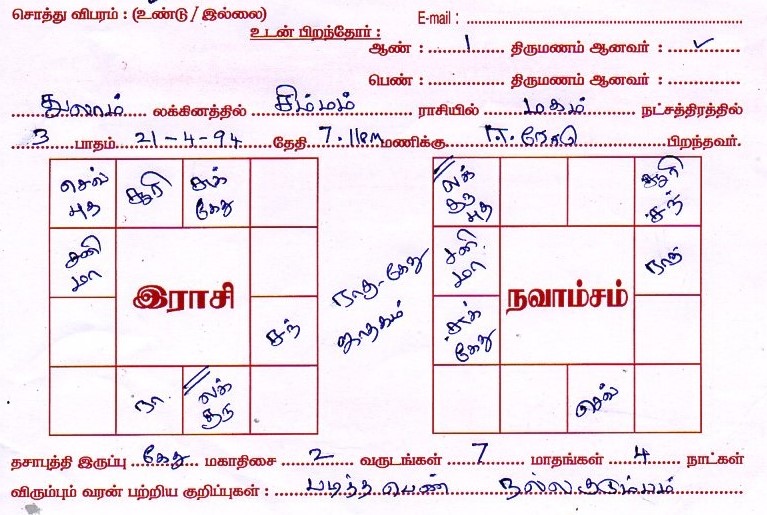 சொத்து விபரம் : (உண்டு / இல்லை)
E-mail :
உடன் பிறந்தோர் :
ஆண் : 1 திருமணம் ஆனவர் : ✓
பெண் : திருமணம் ஆனவர் :
துலாம் லக்கினத்தில் சிம்மம் ராசியில் மகம் நட்சத்திரத்தில்
3 பாதம் 21-4-94 தேதி 7.11 PM மணிக்கு பிறந்தவர்.
செவ் புத சூரி சுக் கேது
சனி மா
இராசி
சந்
ரா லக் குரு
ராகு-கேது ஜாதகம்
லக் குரு புத சூரி சந்
சனி மா ராகு
நவாம்சம்
சுக் கேது
செவ்
தசாபுத்தி இருப்பு கேது மகாதிசை 2 வருடங்கள் 7 மாதங்கள் 4 நாட்கள்
விரும்பும் வரன் பற்றிய குறிப்புகள் : படித்த பெண் நல்ல குடும்பம்